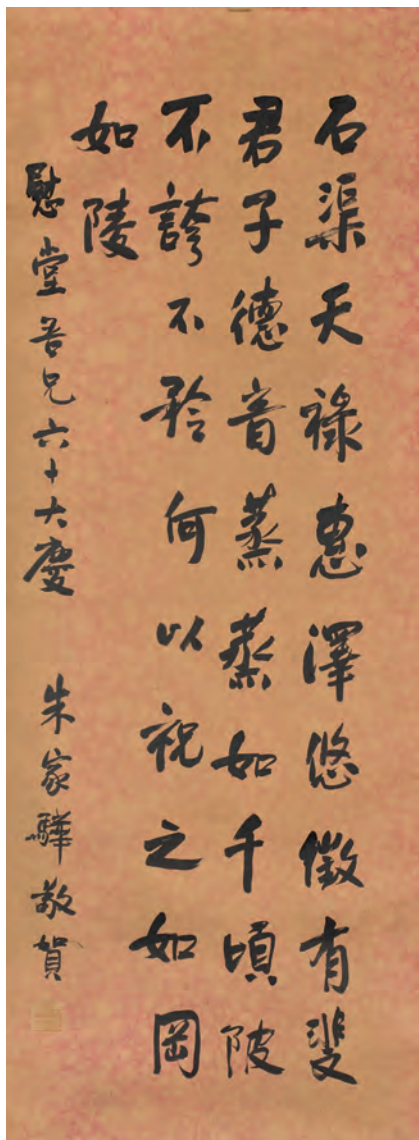 石渠天祿惠澤悠徵有斐
君子德音蒸蒸如千頃陂
不誇不矜何以祝之如岡
如陵
慰堂吾兄六十大慶 朱家驊敬賀